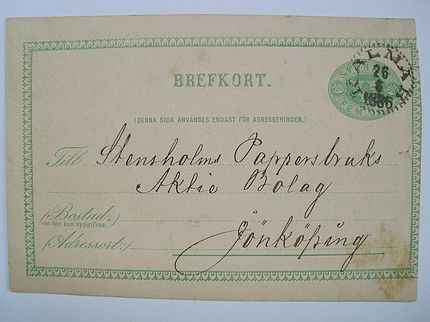 BREFKORT.
KALMAR
26
1886
(DENNA SIDA ANVÄNDES ENDAST FÖR ADRESSERINGEN.)
Till Stensholms Pappersbruks
Aktie Bolag
(Bostad.)
om den kan uppgifvas:
(Adressort:) Jönköping